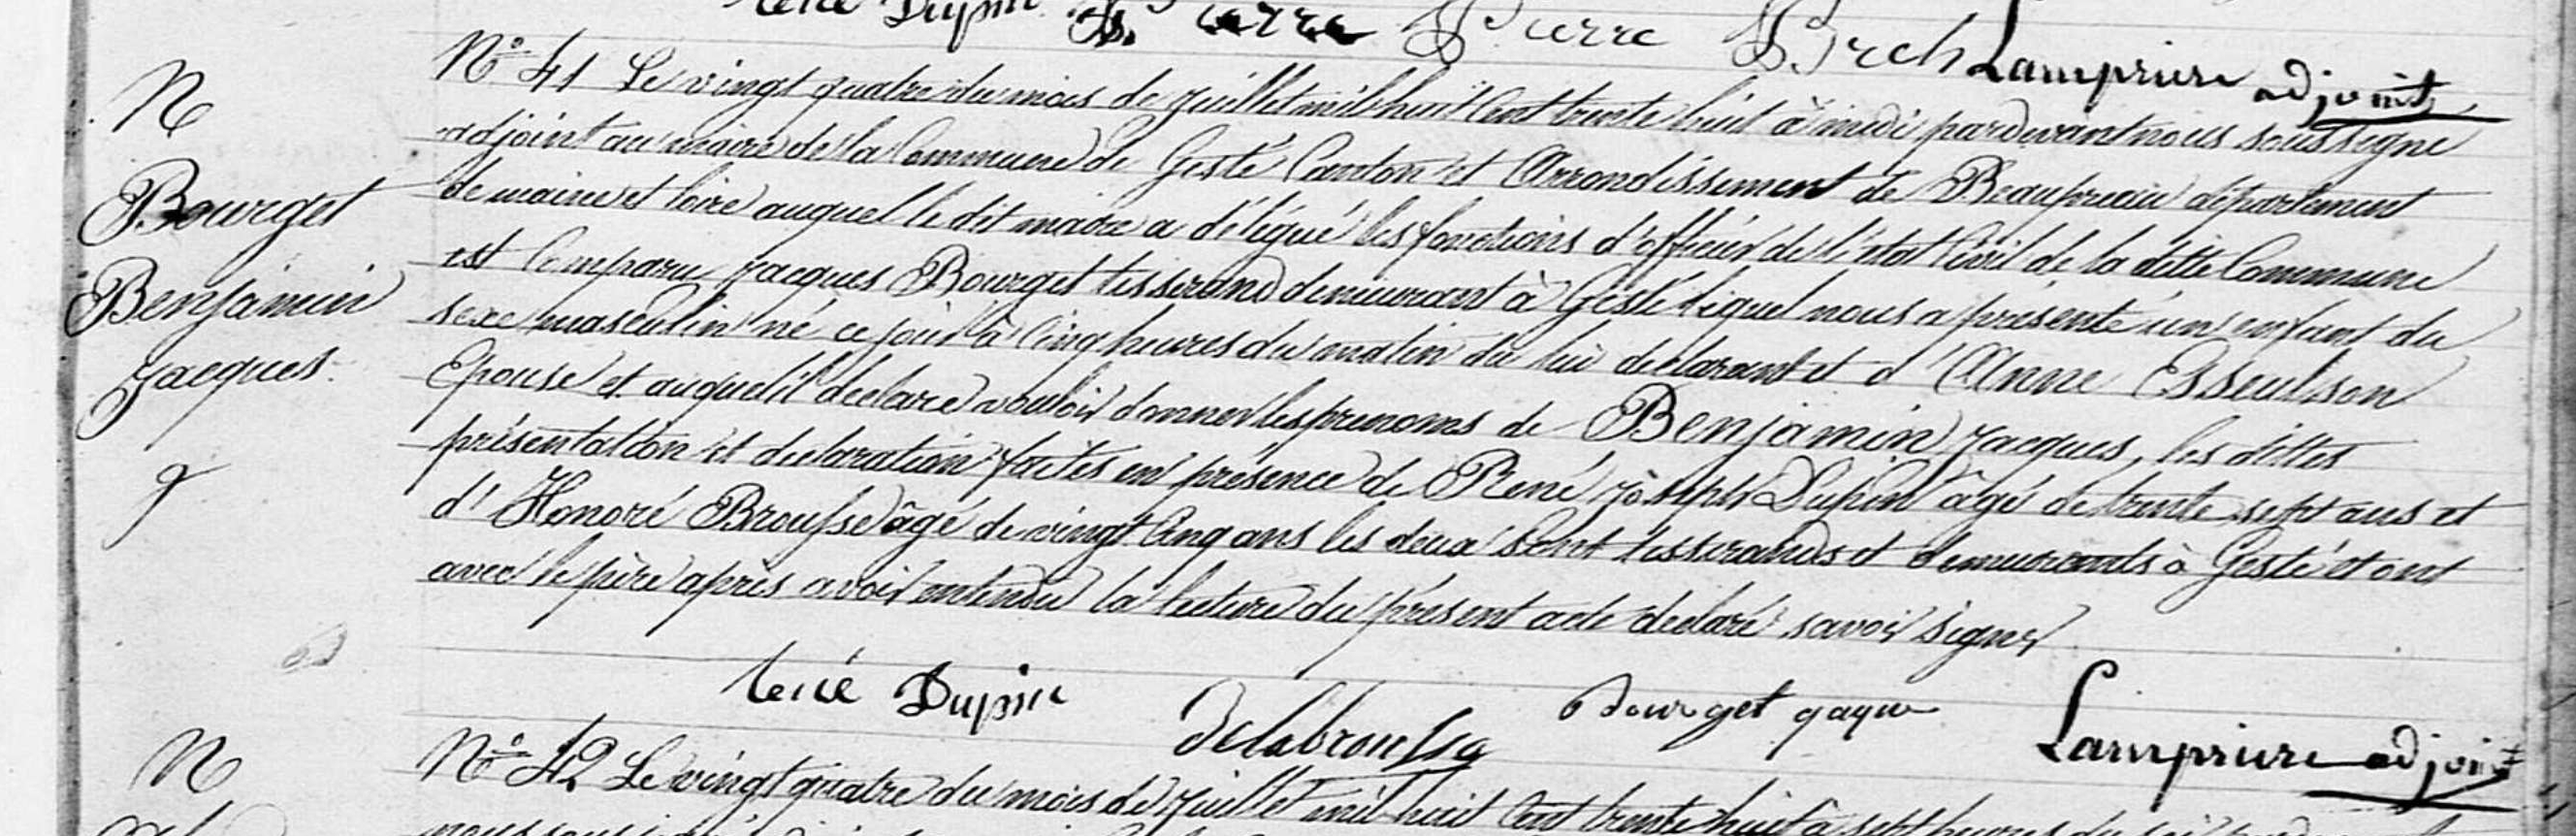 René Dupin Pierre Pierre Brech Lampriere adjoint
N
Bourget
Benjamin
Jacques
N° 41 Le vingt quatre du mois de juillet mil huit cent trente huit à midi pardevant nous soussigné
adjoint au maire de la Commune de Gesté Canton et Arrondissement de Beaupreau département
de maine et loire auquel le dit maire a délégué les fonctions d'officier de l'état Civil de la ditte Commune
est Comparu Jacques Bourget tisserand demeurant à Gesté lequel nous a présenté un enfant du
sexe masculin né ce jour à Cinq heures du matin du lui déclarant et d'Anne Esseul son
Epouse et auquel il déclare vouloir donner les prenoms de Benjamin Jacques, les dittes
présentation et déclaration faites en présence de René joseph Dupin âgé de trente sept ans et
d'Honoré Brousse âgé de vingt Cinq ans les deux sont tisserands et demeurants à Gesté et ont
avec le père après avoir entendu la lecture du présent acte declaré savoir signer
René Dupin Delabrousse Bourget gaque Lampriere adjoint
N
N° 42 Le vingt quatre du mois de juillet mil huit Cent trente huit à sept heures du soir